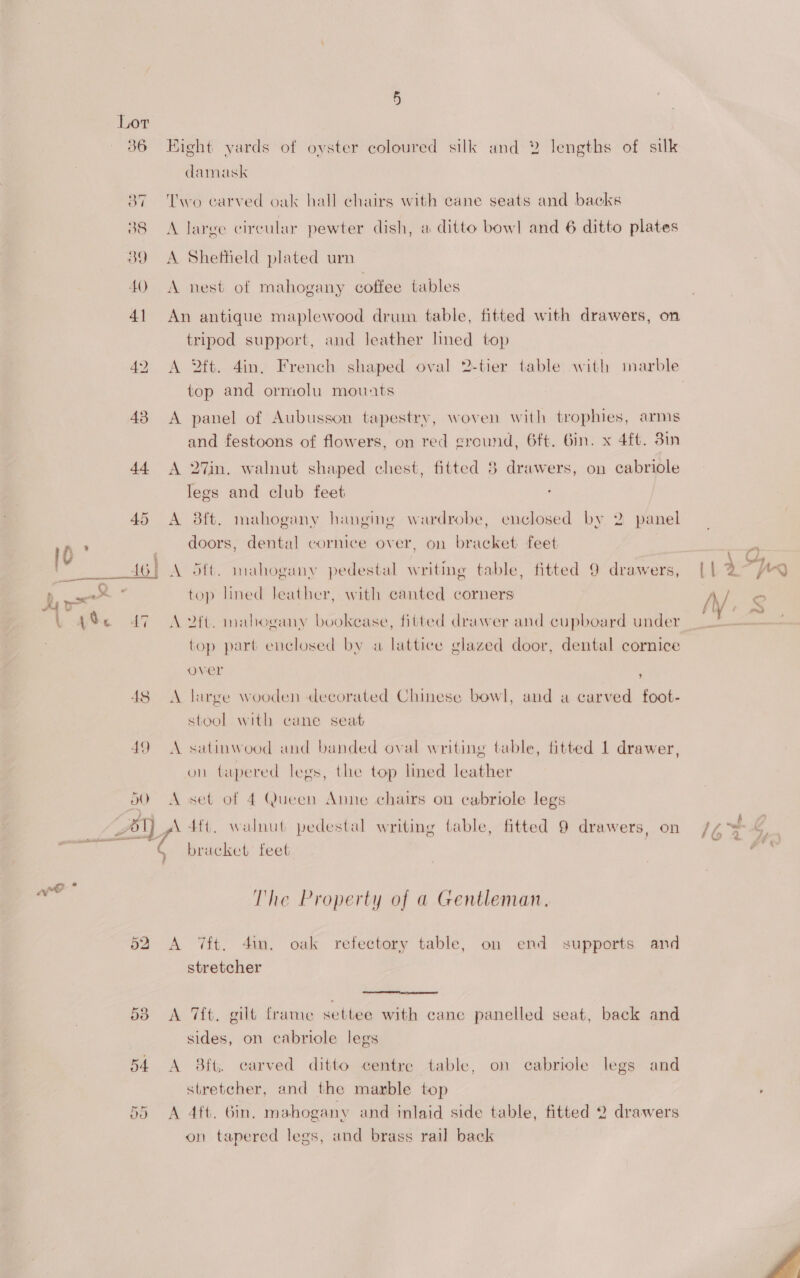 5
Lot
36 Eight yards of oyster coloured silk and 2 lengths of silk
damask
37 Two carved oak hall chairs with cane seats and backs
38 A large circular pewter dish, a ditto bowl and 6 ditto plates
39 A Sheffield plated urn
40 A nest of mahogany coffee tables
41 An antique maplewood drum table, fitted with drawers, on
tripod support, and leather lined top
42 A 2ft. 4in. French shaped oval 2-tier table with marble
top and ormolu mounts
43 A panel of Aubusson tapestry, woven with trophies, arms
and festoons of flowers, on red ground, 6ft. 6in. x 4ft. 3in
44 A 27in. walnut shaped chest, fitted 3 drawers, on cabriole
legs and club feet
45 A 3ft. mahogany hanging wardrobe, enclosed by 2 panel
doors, dental cornice over, on bracket feet
46 A 5ft. mahogany pedestal writing table, fitted 9 drawers,
top lined leather, with canted corners
47 A 2ft. mahogany bookcase, fitted drawer and cupboard under
top part enclosed by a lattice glazed door, dental cornice
over
48 A large wooden decorated Chinese bowl, and a carved foot-
stool with cane seat
49 A satinwood and banded oval writing table, fitted 1 drawer,
on tapered legs, the top lined leather
50 A set of 4 Queen Anne chairs on cabriole legs
51 A 4ft. walnut pedestal writing table, fitted 9 drawers, on
bracket feet
The Property of a Gentleman.
52 A 7ft. 4in. oak refectory table, on end supports and
stretcher
53 A 7ft. gilt frame settee with cane panelled seat, back and
sides, on cabriole legs
54 A 3ft. carved ditto centre table, on cabriole legs and
stretcher, and the marble top
55 A 4ft. 6in. mahogany and inlaid side table, fitted 2 drawers
on tapered legs, and brass rail back